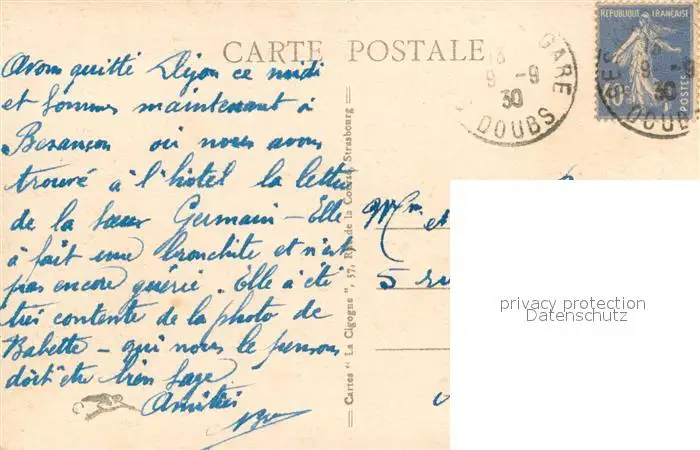 CARTE POSTALE
Avons quitté Dijon ce midi
et sommes maintenant à
Besançon où nous avons
trouvé à l'hôtel la lettre
de la Sœur Germain - Elle
a fait une bronchite et n'est
pas encore guérie. Elle a été
très contente de la photo de
Babette - qui nous le pensons
doit être bien sage
Amitiés
Cartes "La Cigogne", 37, Rue de la Course, Strasbourg
REPUBLIQUE FRANÇAISE
POSTES
GARE
9 -9
30
DOUBS
9 -9
30
DOUBS
Mm et
5 ru
privacy protection
Datenschutz